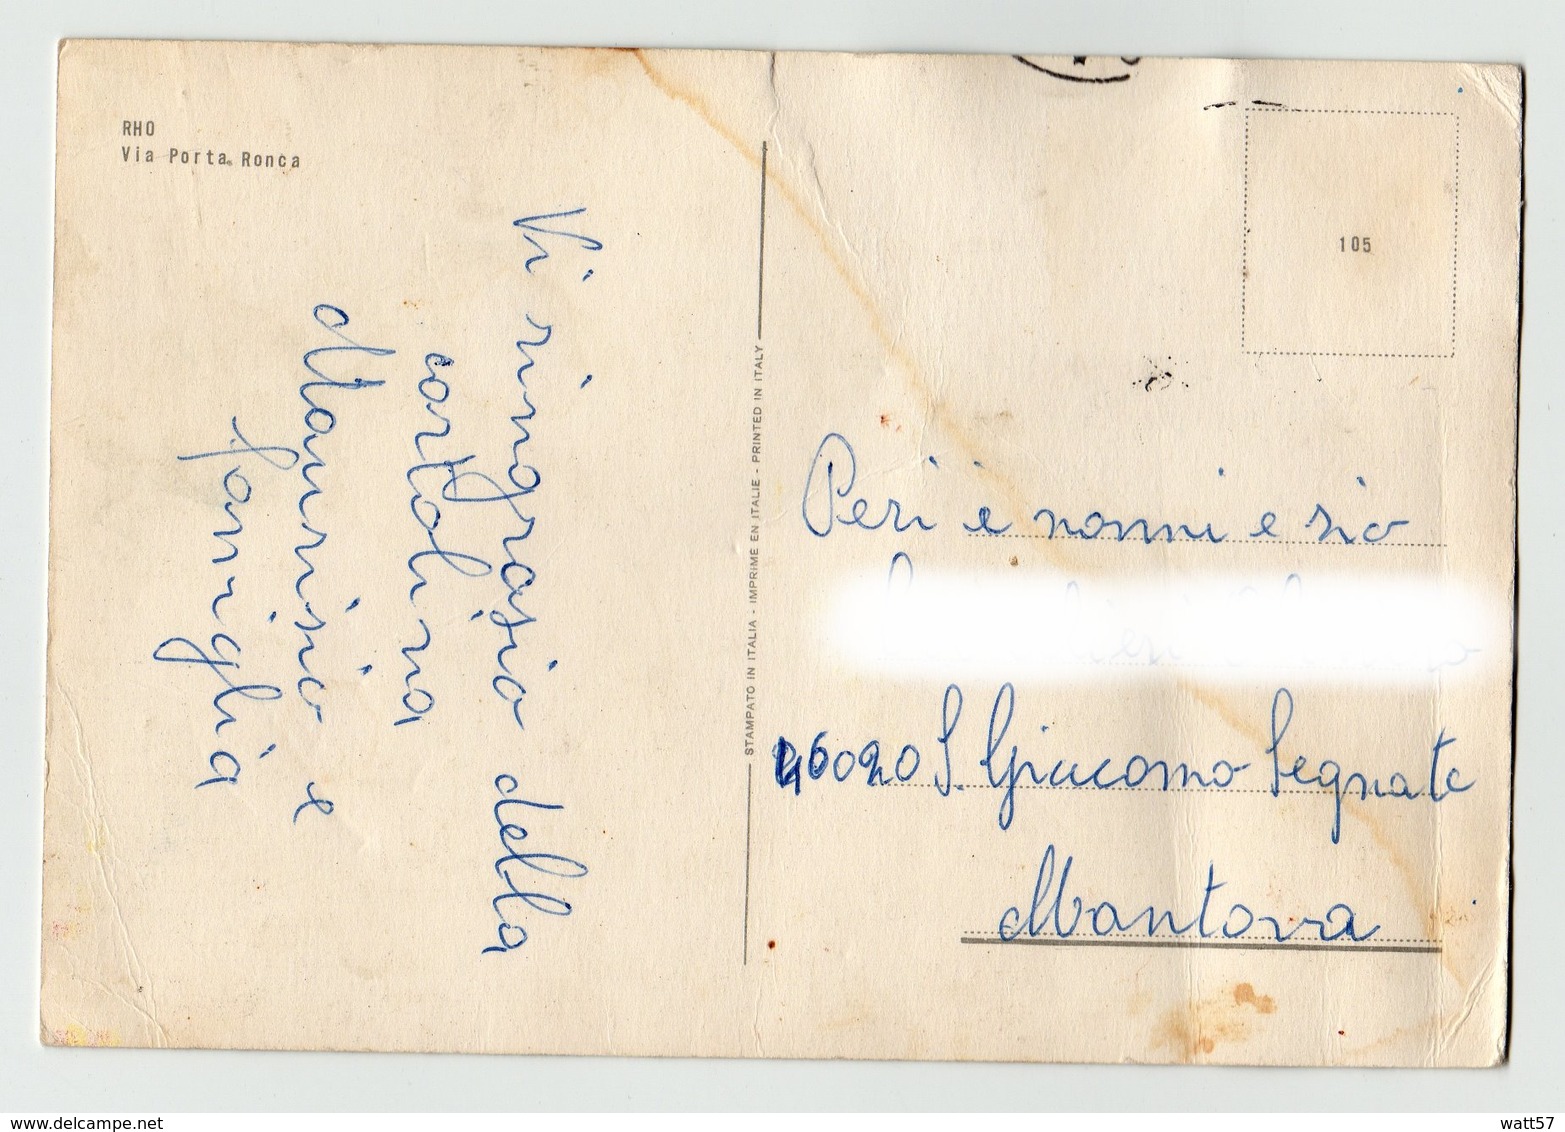 RHO
Via Porta Ronca
Vi ringrazio della
cartolina
Maurizio e
famiglia
STAMPATO IN ITALIA - IMPRIME EN ITALIE - PRINTED IN ITALY
105
Peri i nonni e zio
46020 S. Giacomo Segnate
Mantova
www.delcampe.net
watt57